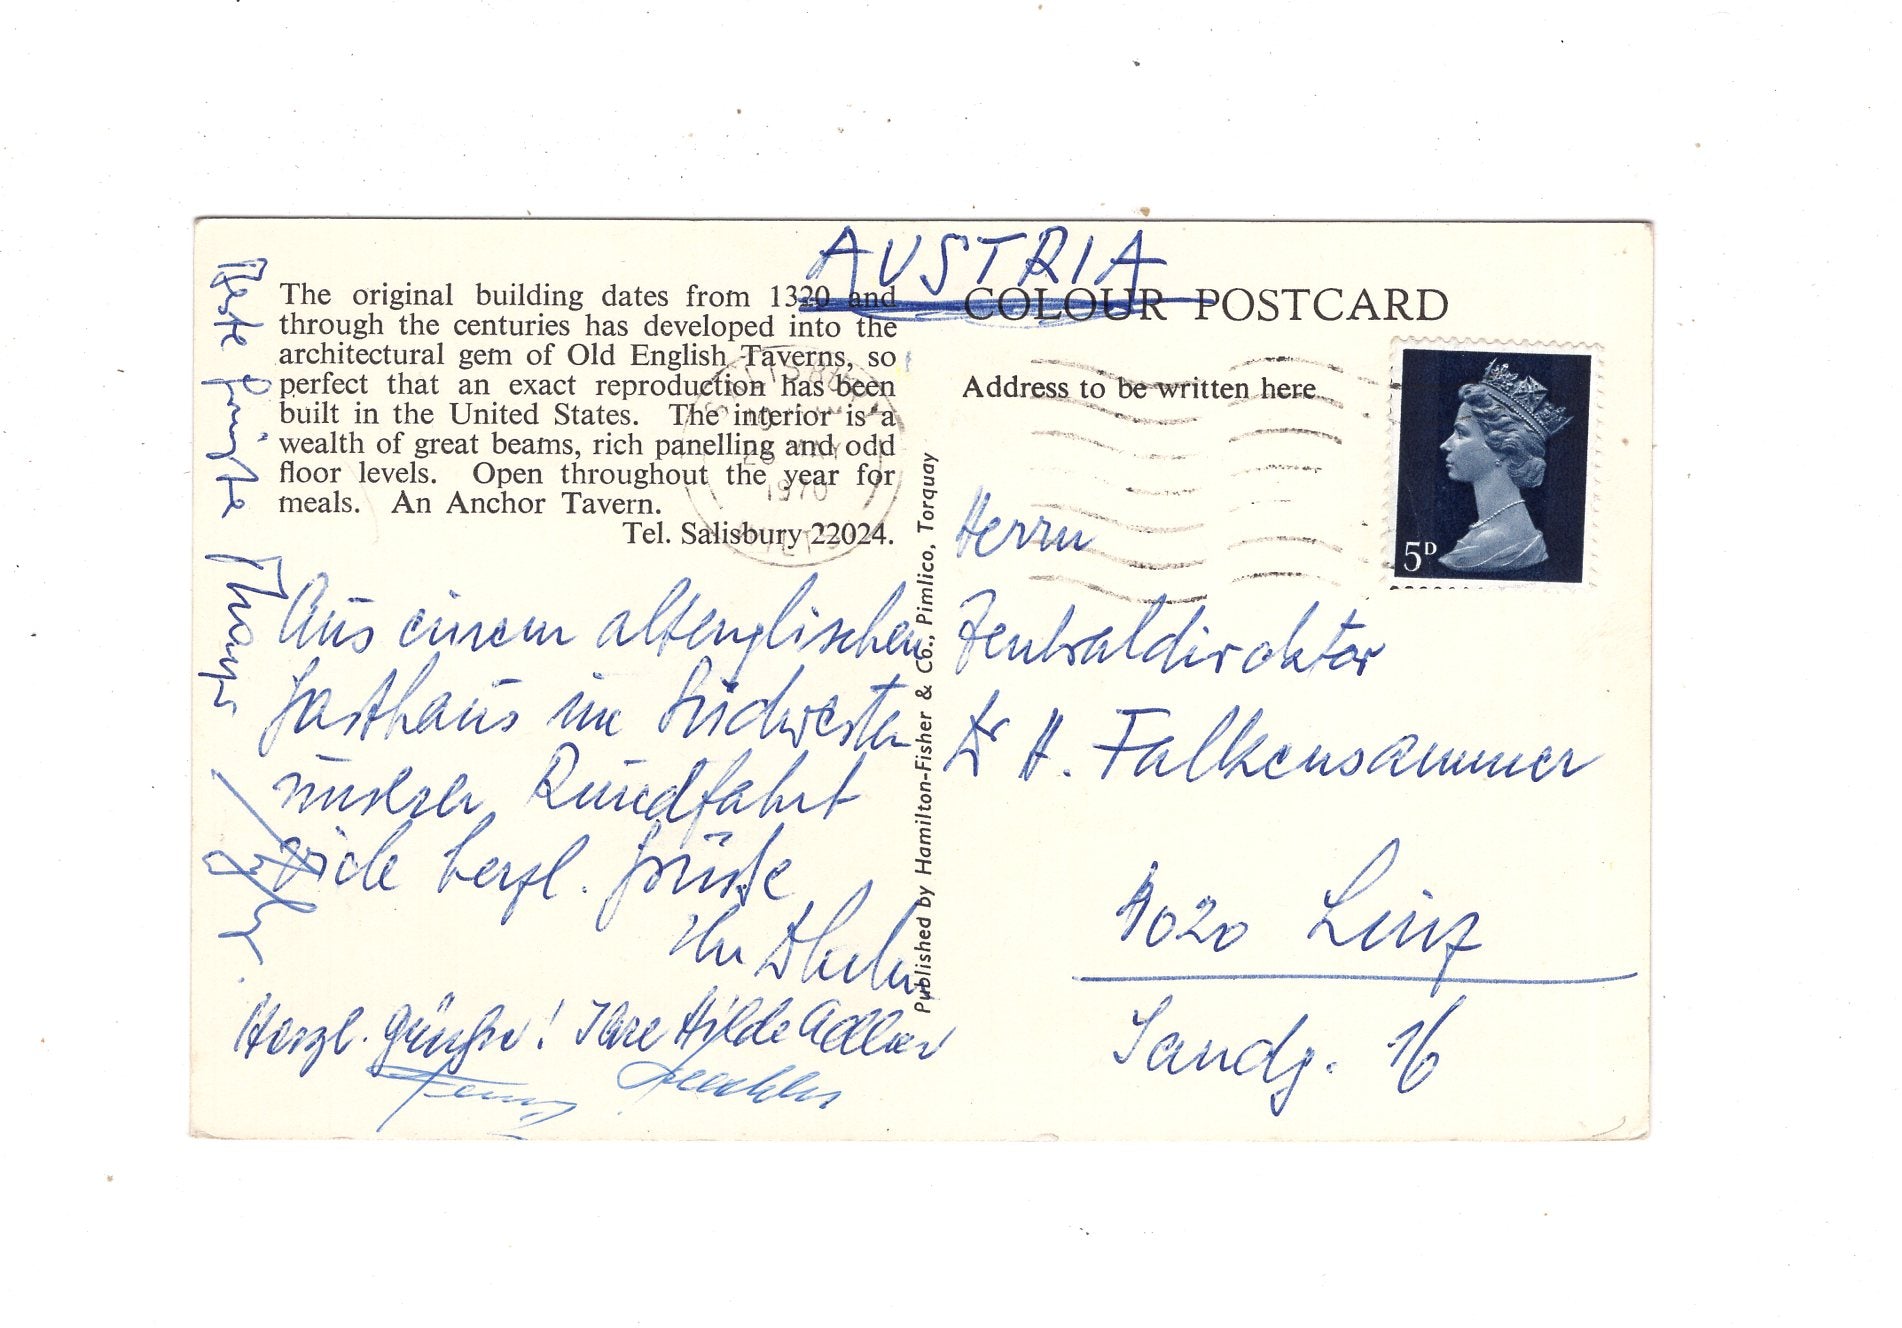 AUSTRIA
The original building dates from 1320 and
through the centuries has developed into the
architectural gem of Old English Taverns, so
perfect that an exact reproduction has been
built in the United States. The interior is a
wealth of great beams, rich panelling and odd
floor levels. Open throughout the year for
meals. An Anchor Tavern.
Tel. Salisbury 22024.
Aus einem altenglischen
Gasthaus im Südwesten
unserer Rundfahrt
viele herzl. Grüße
Ihr
Herzl. Grüße! Ihre Hilde Adler
Beste Grüße
Published by Hamilton-Fisher & Co., Pimlico, Torquay
COLOUR POSTCARD
Address to be written here
SALISBURY
1970
5D
Herrn
Zentraldirektor
Dr H. Falkensammer
4020 Linz
Sandg. 16